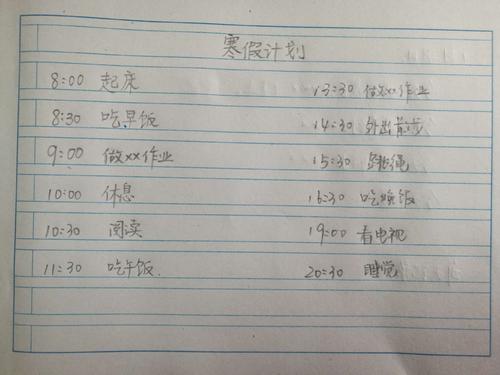 寒假计划
8:00 起床
8:30 吃早饭
9:00 做xx作业
10:00 休息
10:30 阅读
11:30 吃午饭.
13:30 做xx作业
14:30 外出散步
15:30 跳绳
16:30 吃晚饭
19:00 看电视
20:30 睡觉